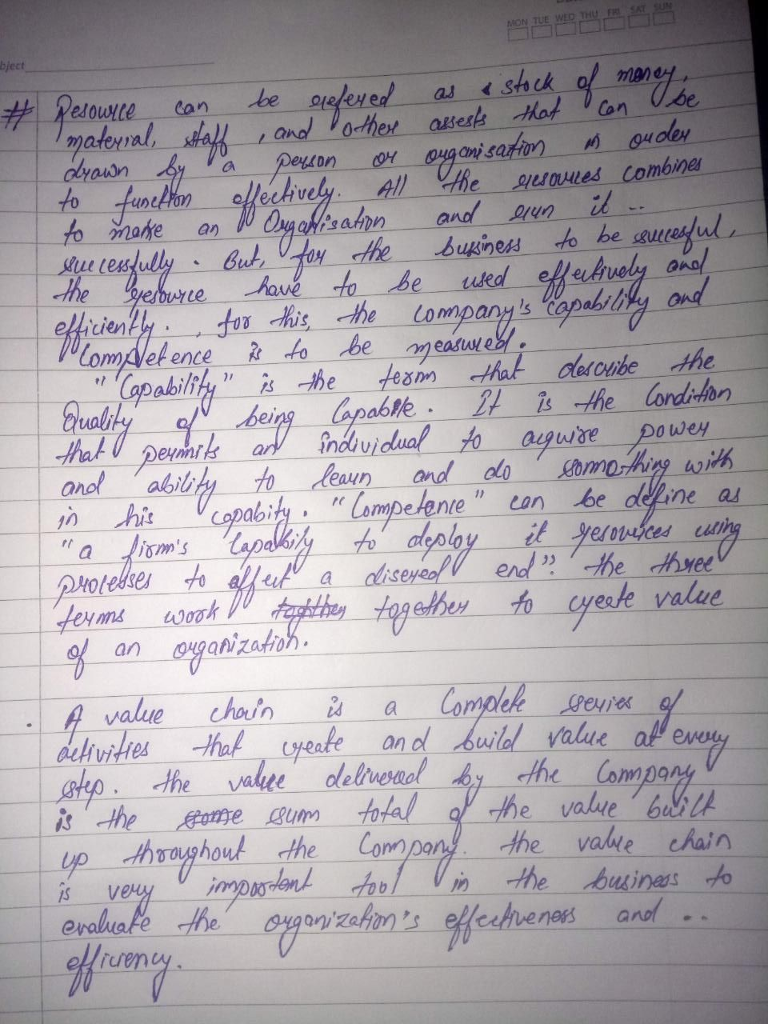 MON TUE WED THU FRI SAT SUN
bject
# Resource can be refered as a stock of money,
material, staff, and other assests that can be
drawn by a person or organisation in order
to function effectively. All the resources combines
to make an Organisation and run it ..
successfully. But, for the business to be successful,
the resource have to be used effectively and
efficiently. , for this, the company's capability and
Competence is to be measured.
"Capability" is the term that describe the
Quality of being Capable. It is the Condition
that permits an individual to acquire power
and ability to learn and do something with
in his capabity. "Competence" can be define as
"a firm's Capability to deploy it resources using
processes to affect a disered end". the three
terms work together to create value
of an organization.
. A value chain is a Complete series of
activities that create and build value at every
step. the value delivered by the Company
is the some sum total of the value built
up throughout the Company. the value chain
is very important tool in the business to
evaluate the organization's effectiveness and ..
efficiency.